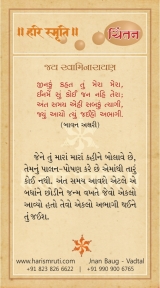 ॥ हरि स्मृति ॥
ચિંતન
જય સ્વામિનારાયણ
જીનકું કહત તું મેરા મેરા,
ઈનમેં સું કોઈ જન નહિ તેરા;
અંત સમય એહી સબકું ત્યાગી,
જ્યું આયો ત્યું જાઈશ અભાગી.
(બાવન અક્ષરી)
જેને તું મારાં મારાં કહીને બોલાવે છે,
તેમનું પાલન-પોષણ કરે છે એમાંથી તારું
કોઈ નથી. અંત સમય આવશે એટલે એ
બધાંને છોડીને જન્મ વખતે જેવો એકલો
આવ્યો હતો તેવો એકલો અભાગી થઈને
તું જઈશ.
www.harismruti.com
Jnan Baug - Vadtal
+91 823 826 6622
+91 990 900 6765